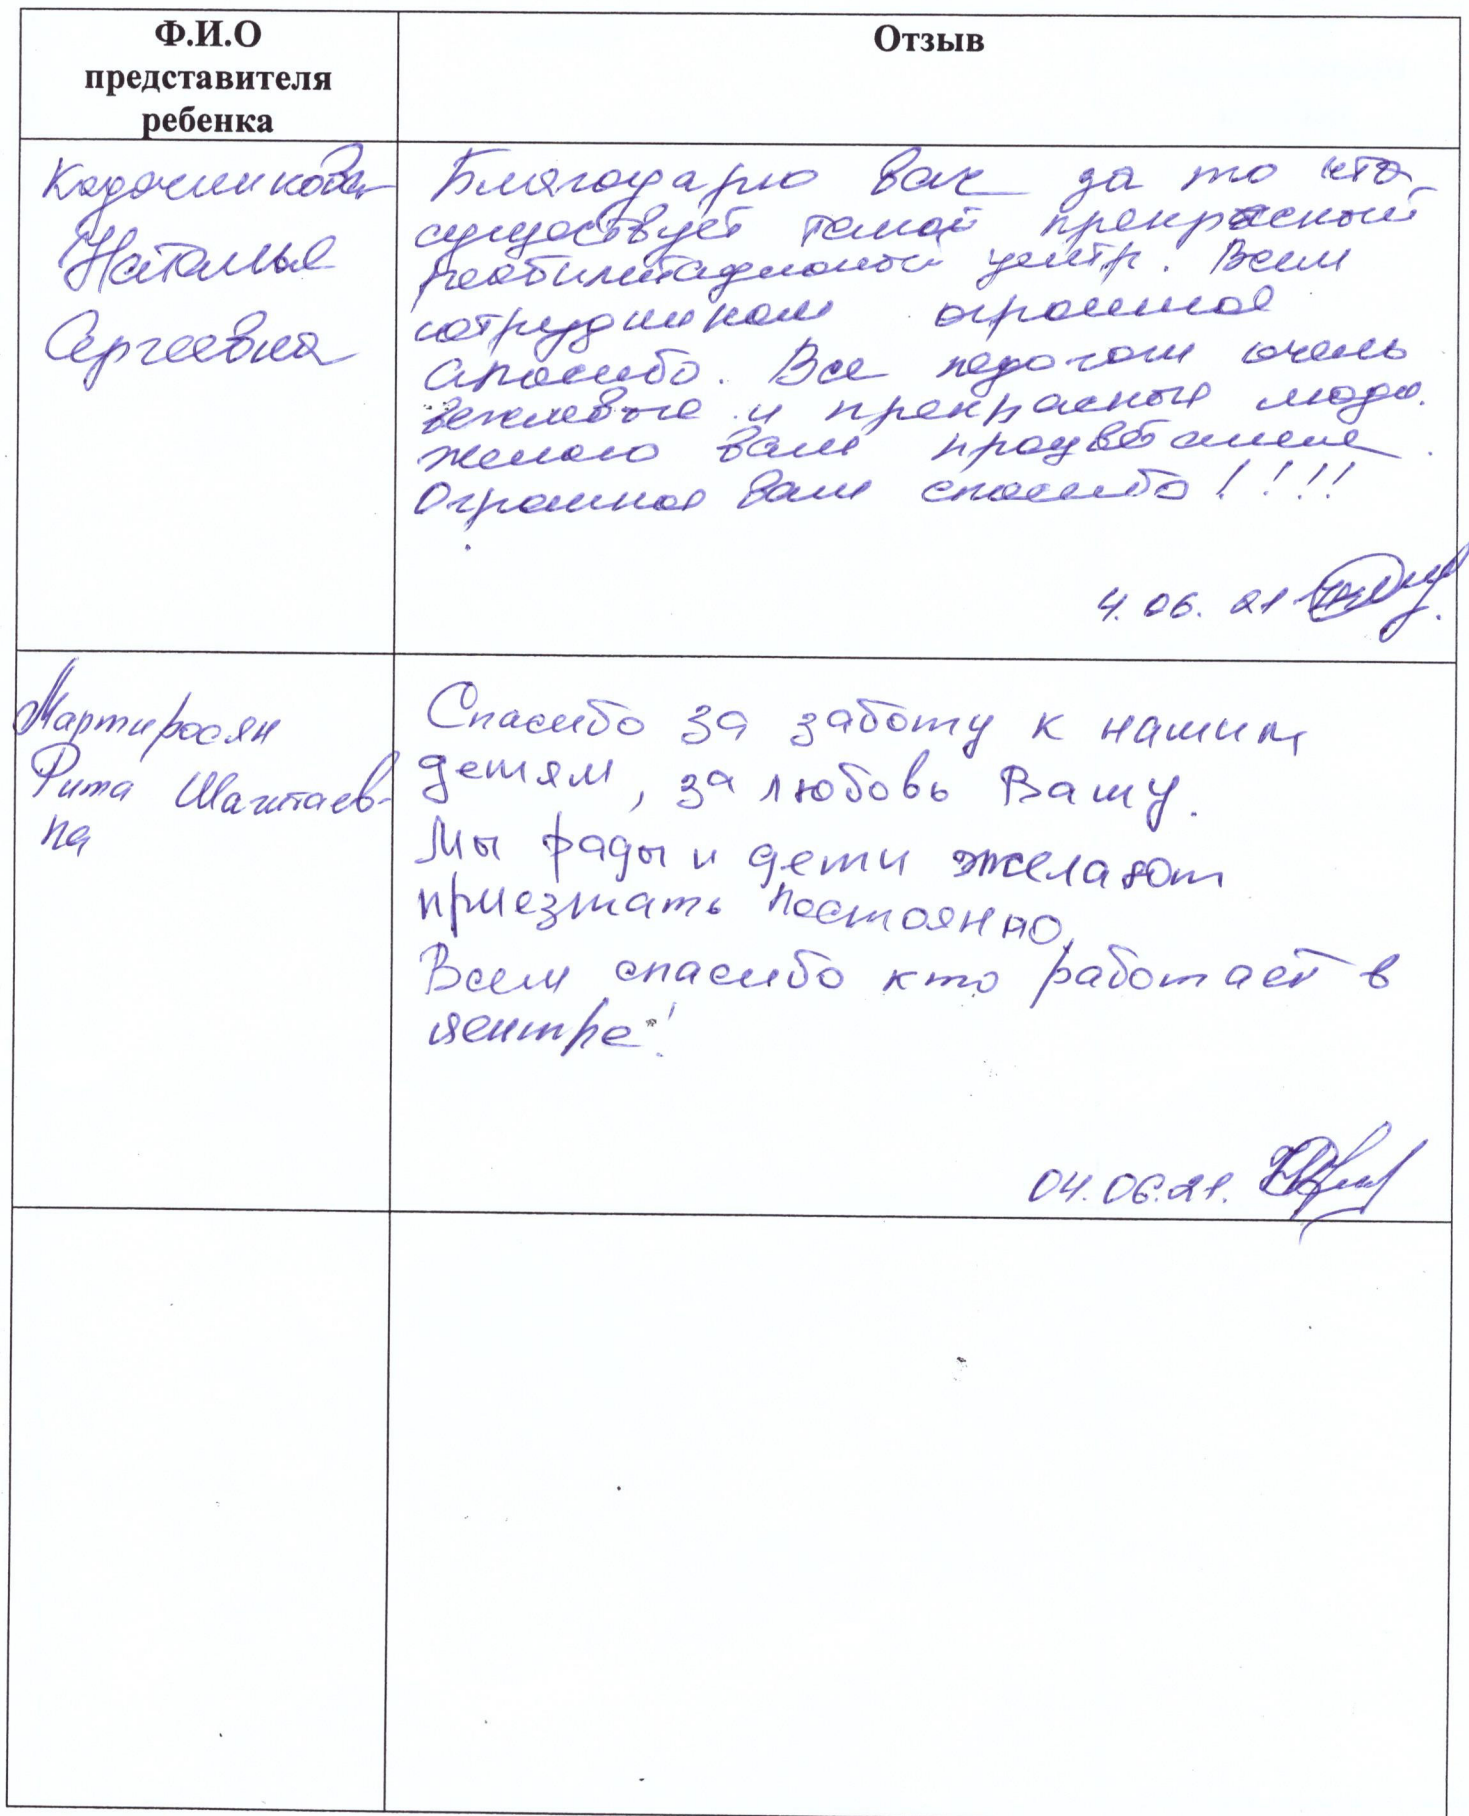 Ф.И.О
представителя
ребенка
Отзыв
Кадочникова
Наталья
Сергеевна
Благодарю вас за то что
существует такой прекрасный
реабилитационый центр. Всем
сотрудникам огромное
спасибо. Все педагоги очень
вежливые и прекрасные люди.
желаю вам процветания.
Огромное вам спасибо!!!!
4.06.21
Мартиросян
Рита
на
Спасибо за заботу к нашим
детям, за любовь Вашу.
Мы рады и дети желают
приезжать постоянно,
Всем спасибо кто работает в
центре!
04.06.21.